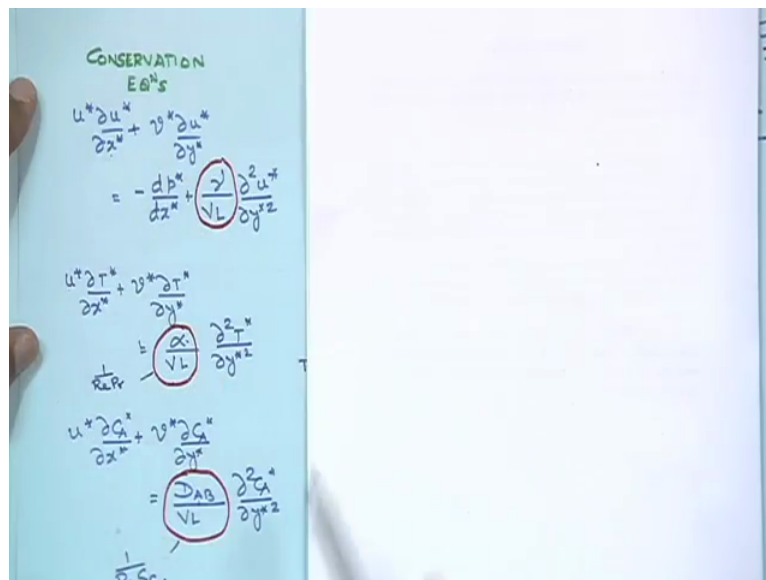 CONSERVATION
EQNS
u* ∂u*/∂x* + v* ∂u*/∂y*
= - dp*/dx* + ν/VL ∂²u*/∂y*²
u* ∂T*/∂x* + v* ∂T*/∂y*
= α/VL ∂²T*/∂y*²
1/Re Pr
u* ∂CA*/∂x* + v* ∂CA*/∂y*
= DAB/VL ∂²CA*/∂y*²